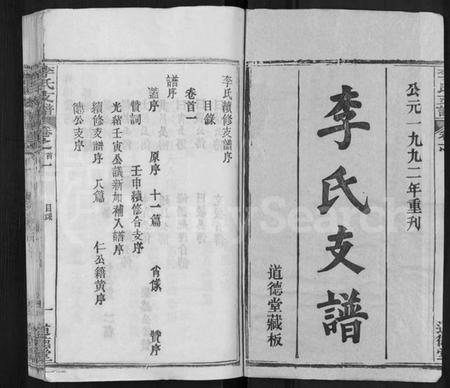 公元一九九二年重刊
李氏支譜
道德堂藏板
李氏續修支譜序
目錄
卷首一
譜序
蓋序 原序 十一篇 肖像 贊序
贊詞 壬申續修合支序
光緒壬寅公議新加補入譜序
續修支譜序 八篇 仁公籍黄序
德公支序
李氏支譜
卷之首一
目錄
一
道德堂